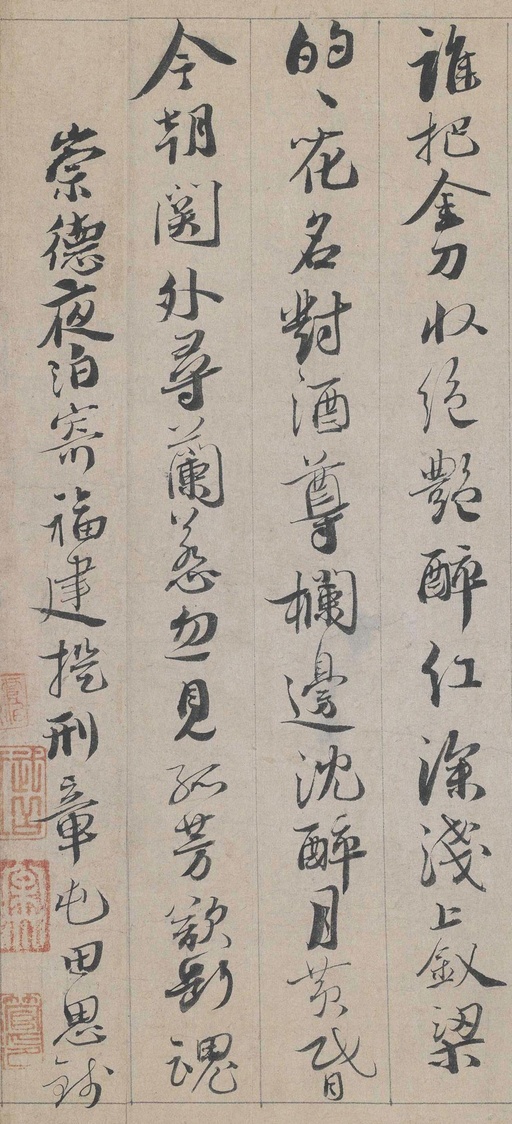 誰把金刀收絕艷醉紅深淺上釵梁
的丶花名對酒尊欄邊沈醉月黃昏
今朝關外尋蘭惹忽見孤芳欲斷魂
崇德夜泊寄福建提刑章屯田思錢